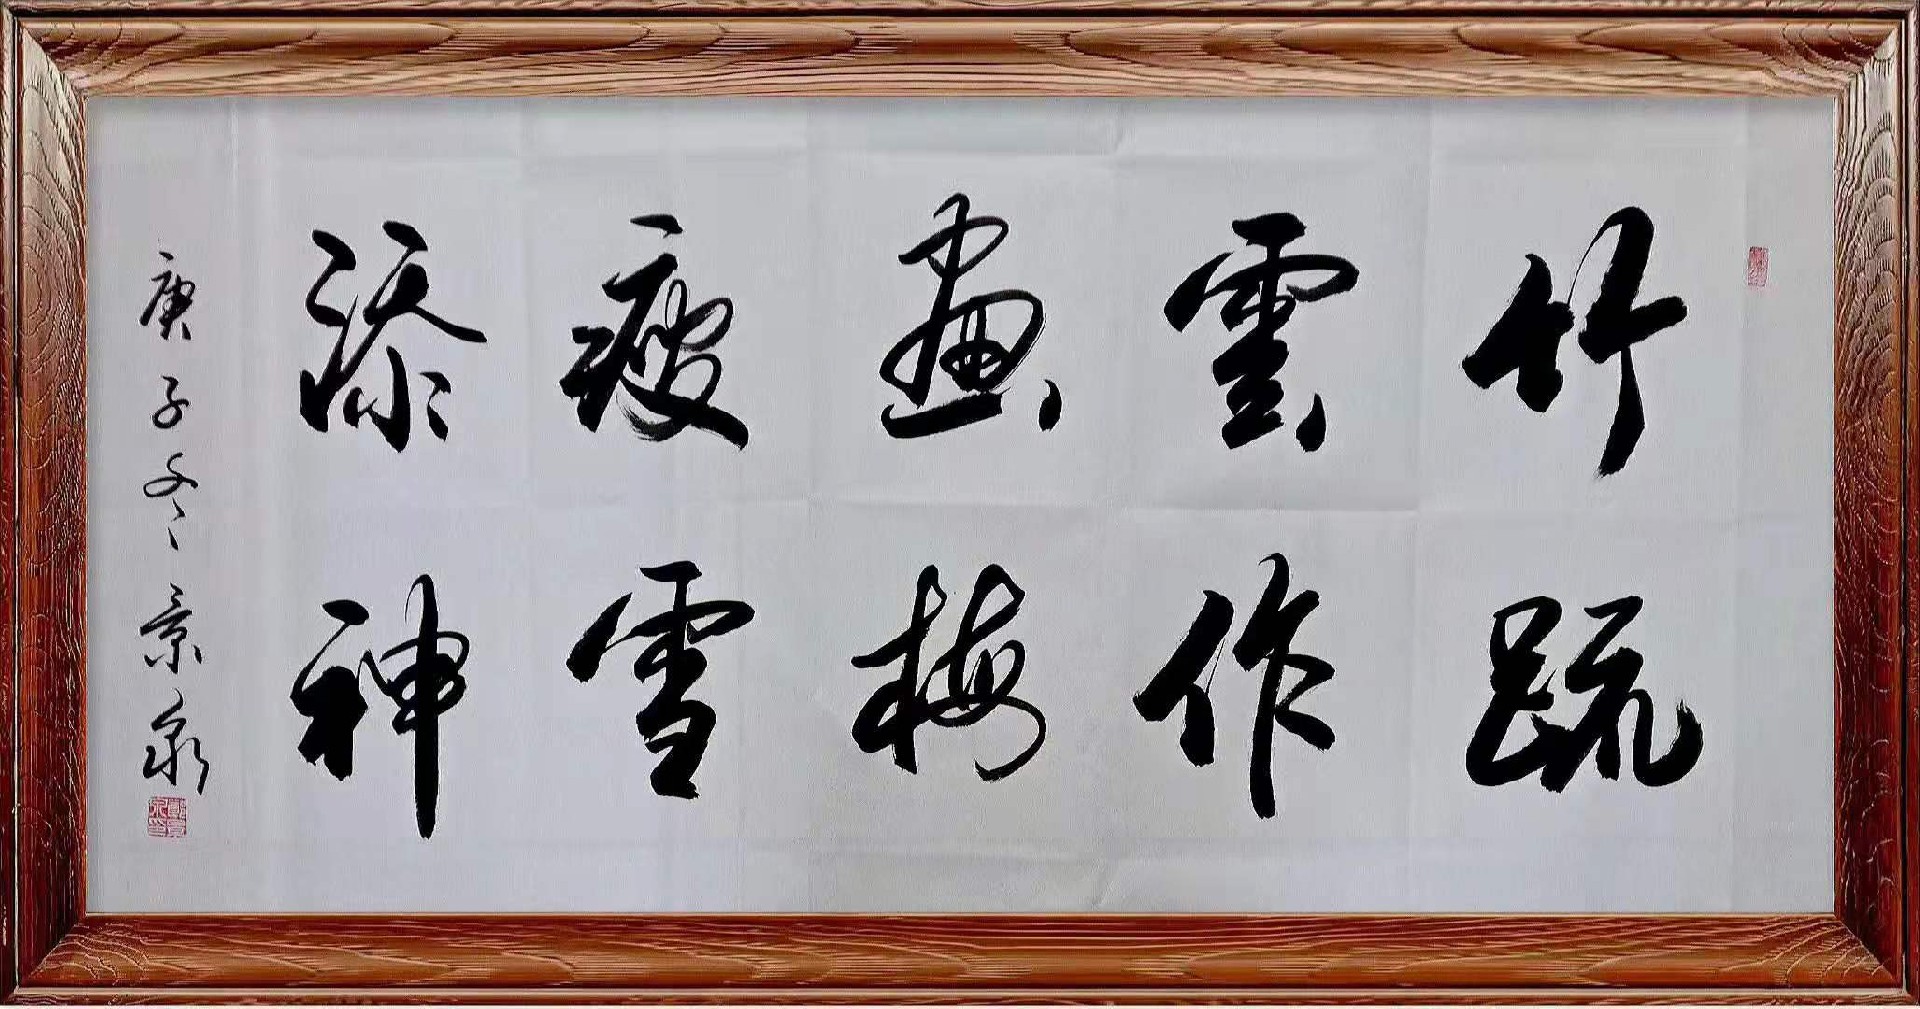 竹疏
雲作
畫梅
瘦雪
添神
庚子冬景泉